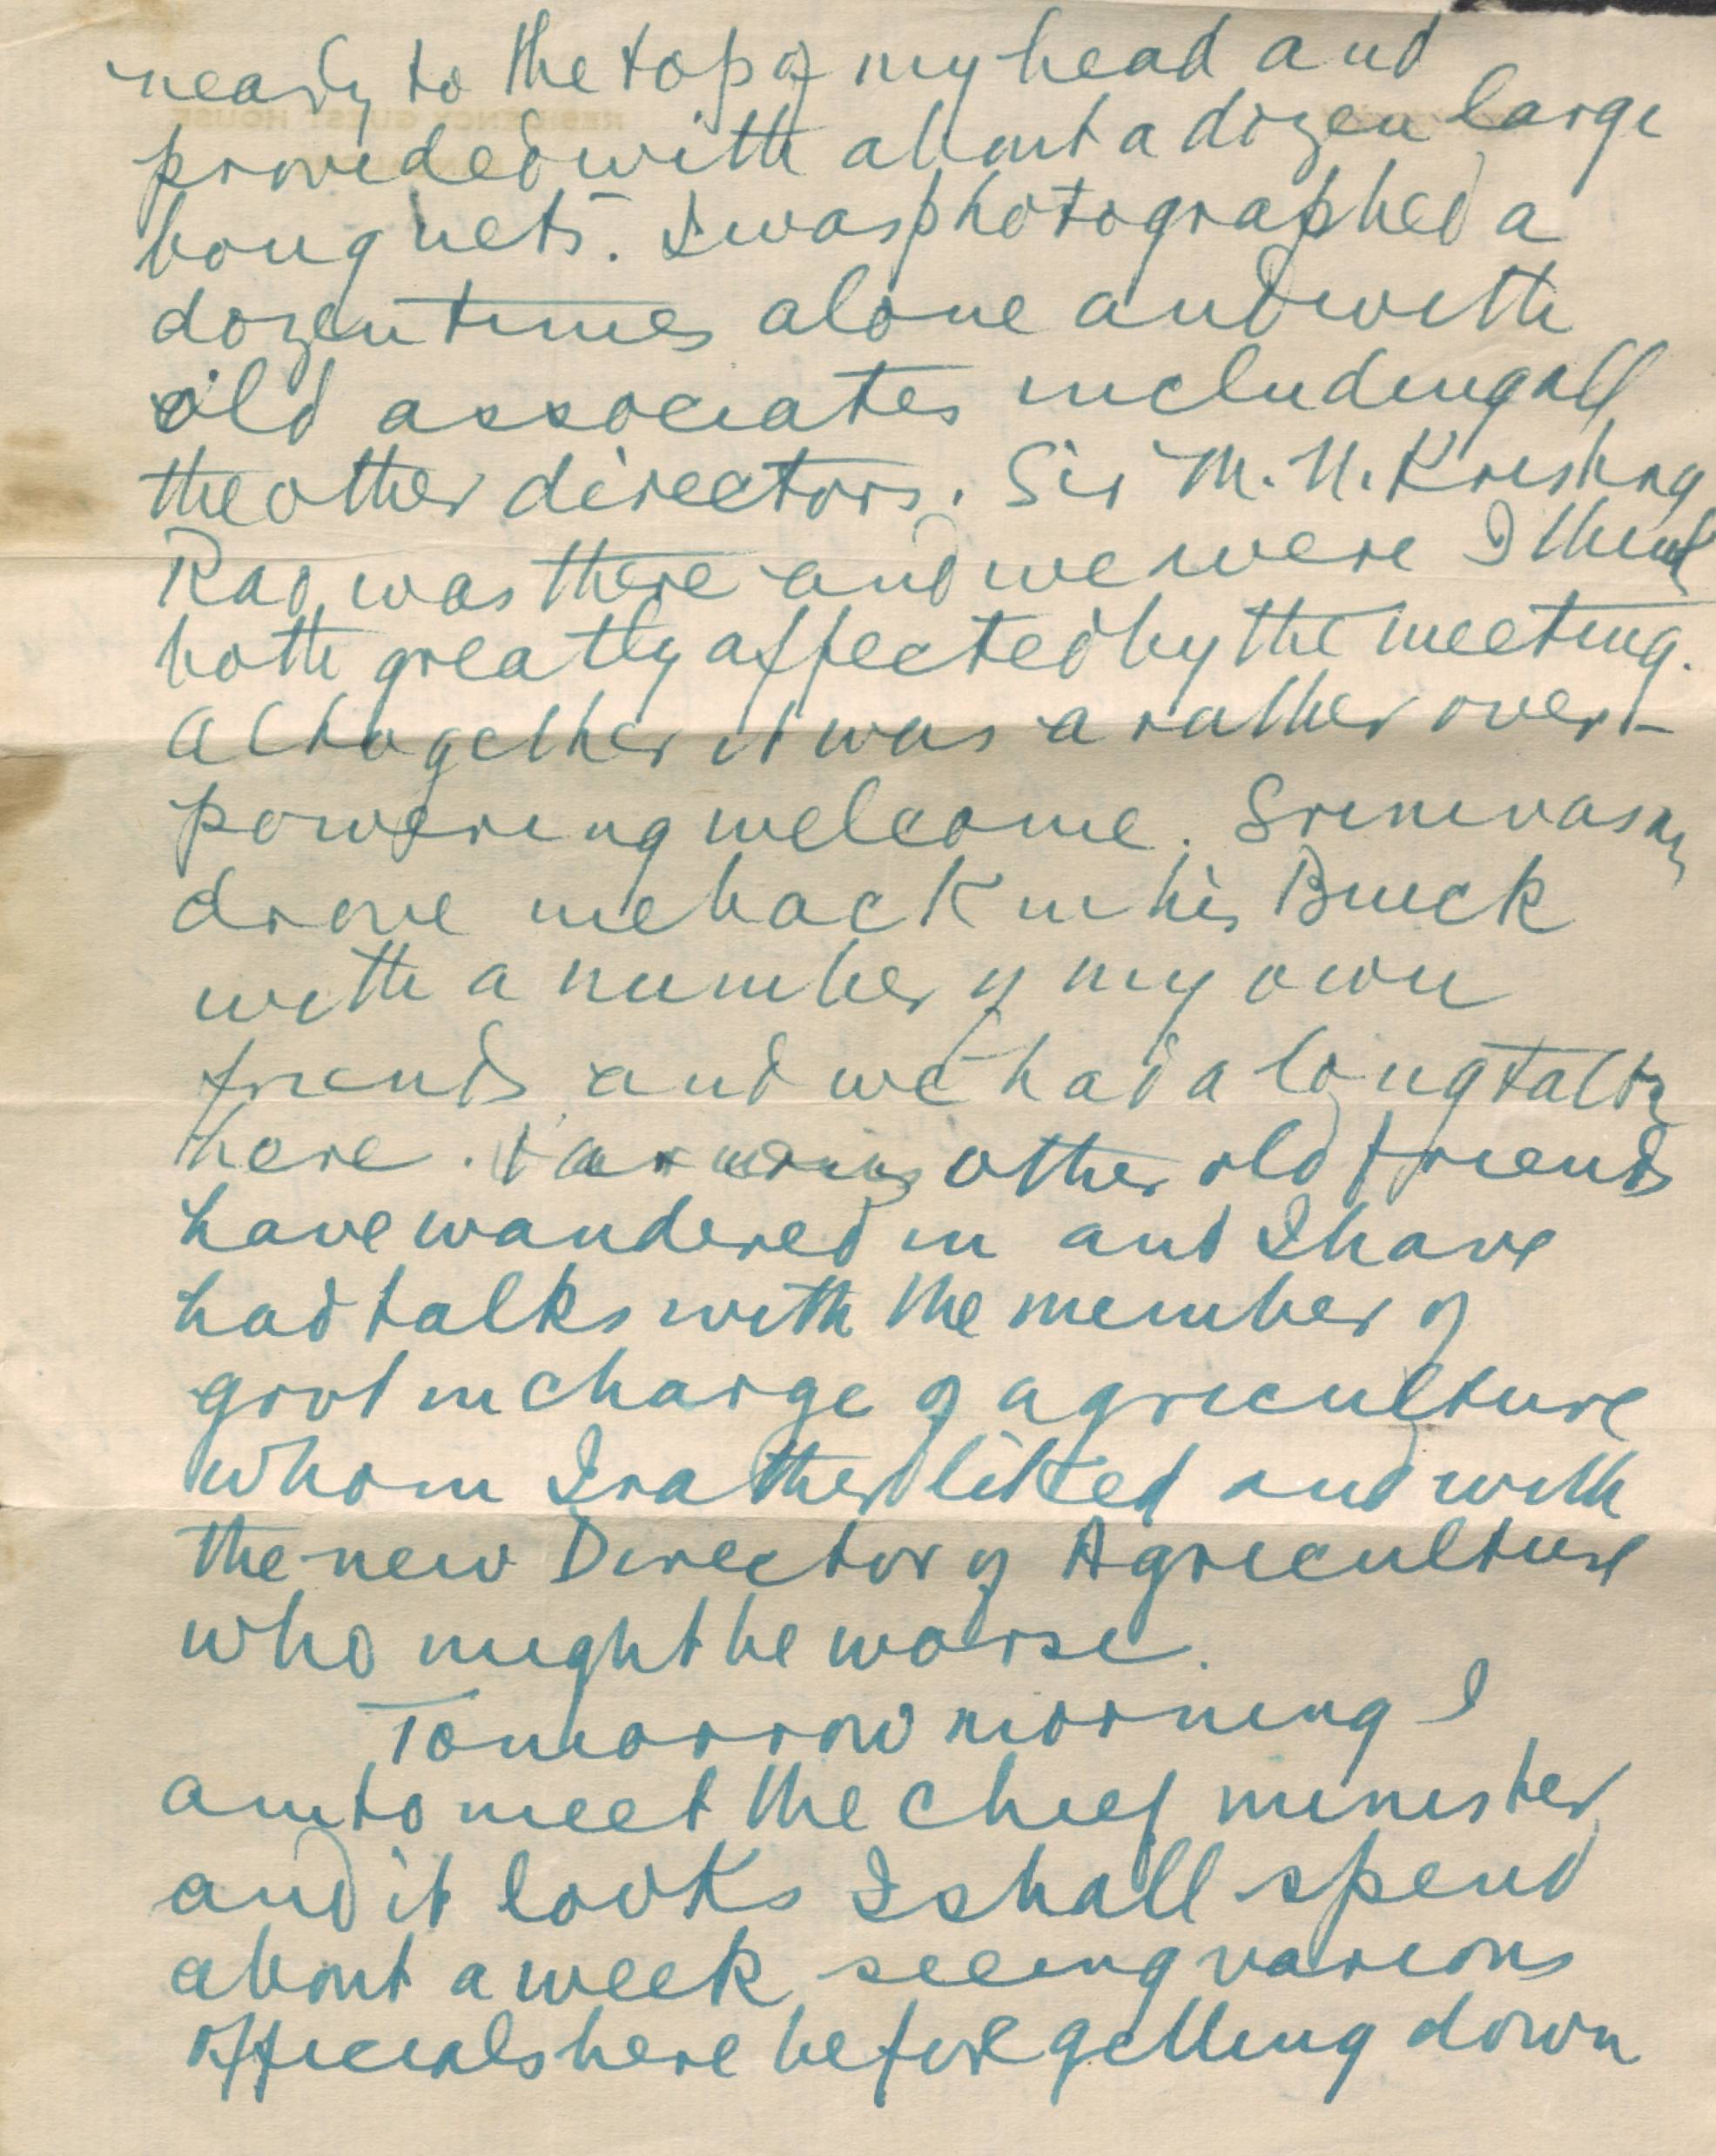 nearly to the top of my head and
provided with about a dozen large
bouquets. I was photographed a
dozen times alone and with
old associates including all
the other directors. Sir M. N. Krishna
Rao was there and we were I think
both greatly affected by the meeting.
Altogether it was a rather over-
powering welcome. Srinivasan
drove me back in his Buick
with a number of my own
friends and we had a long talk
here. other old friends
have wandered in and I have
had talks with the member of
govt in charge of agriculture
whom I rather liked and with
the new Director of Agriculture
who might be worse.
Tomorrow morning I
am to meet the chief minister
and it looks I shall spend
about a week seeing various
officials here before getting down
RESIDENCY GUEST HOUSE